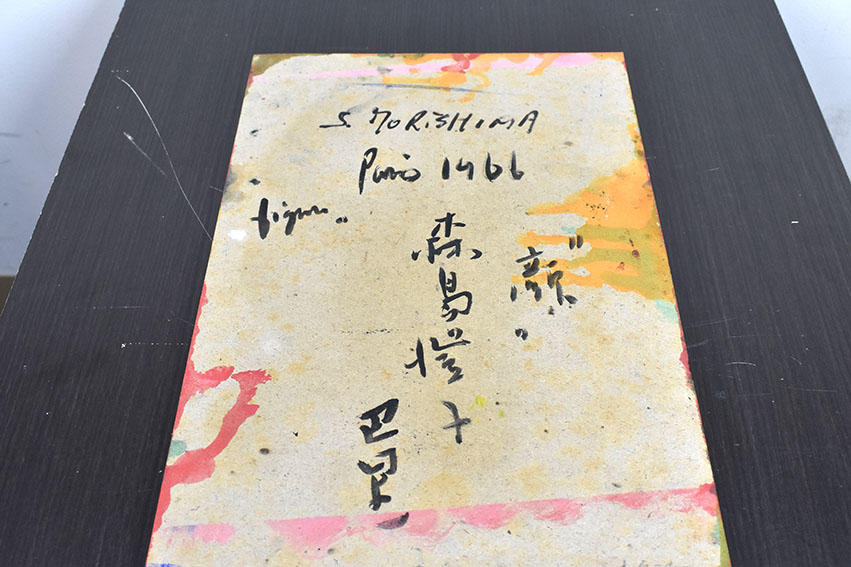 S. MORISHIMA
Paris 1966
"figure"
"顔"
森島
巴里